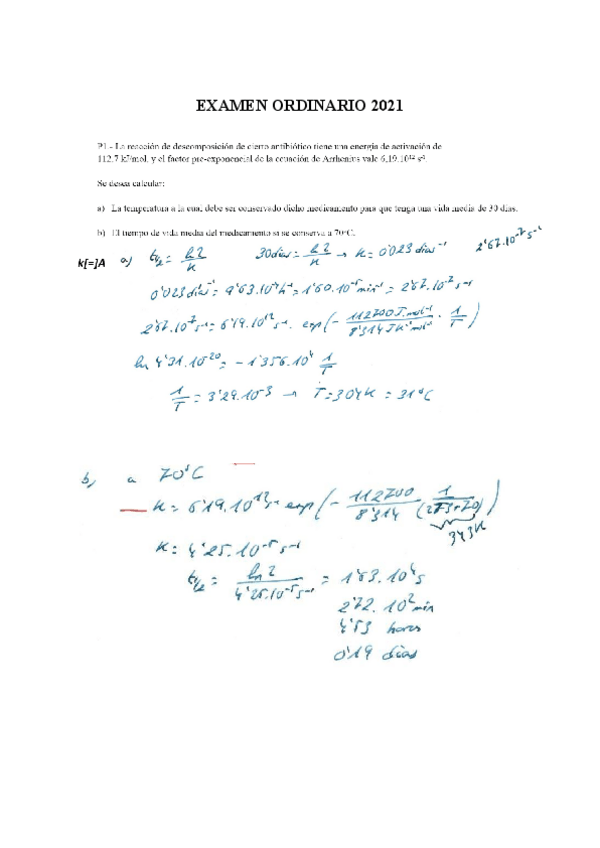 EXAMEN ORDINARIO 2021
P1.- La reacción de descomposición de cierto antibiótico tiene una energía de activación de
112.7 kJ/mol, y el factor pre-exponencial de la ecuación de Arrhenius vale 6,19.10¹² s⁻¹.
Se desea calcular:
a) La temperatura a la cual debe ser conservado dicho medicamento para que tenga una vida media de 30 días.
b) El tiempo de vida media del medicamento si se conserva a 70°C.
k[=]A a) t½ = ln 2 / k 30días = ln 2 / k → k = 0'023 días⁻¹ 2'67.10⁻⁷ s⁻¹
0'023 días⁻¹ = 9'63.10⁻⁴ h⁻¹ = 1'60.10⁻⁵ min⁻¹ = 2'67.10⁻⁷ s⁻¹
2'67.10⁻⁷ s⁻¹ = 6'19.10¹² s⁻¹. exp(- 112700 J.mol⁻¹ / 8'314 JK⁻¹mol⁻¹ . 1/T)
ln 4'31.10⁻²⁰ = -1'356.10⁴ 1/T
1/T = 3'29.10⁻³ → T = 304K = 31°C
b) a 70°C
k = 6'19.10¹² s⁻¹ exp(- 112700 / 8'314 1/(273+70))
343K
k = 4'25.10⁻⁵ s⁻¹
t½ = ln 2 / 4'25.10⁻⁵ s⁻¹ = 1'63.10⁴ s
2'72.10² min
4'53 horas
0'19 días